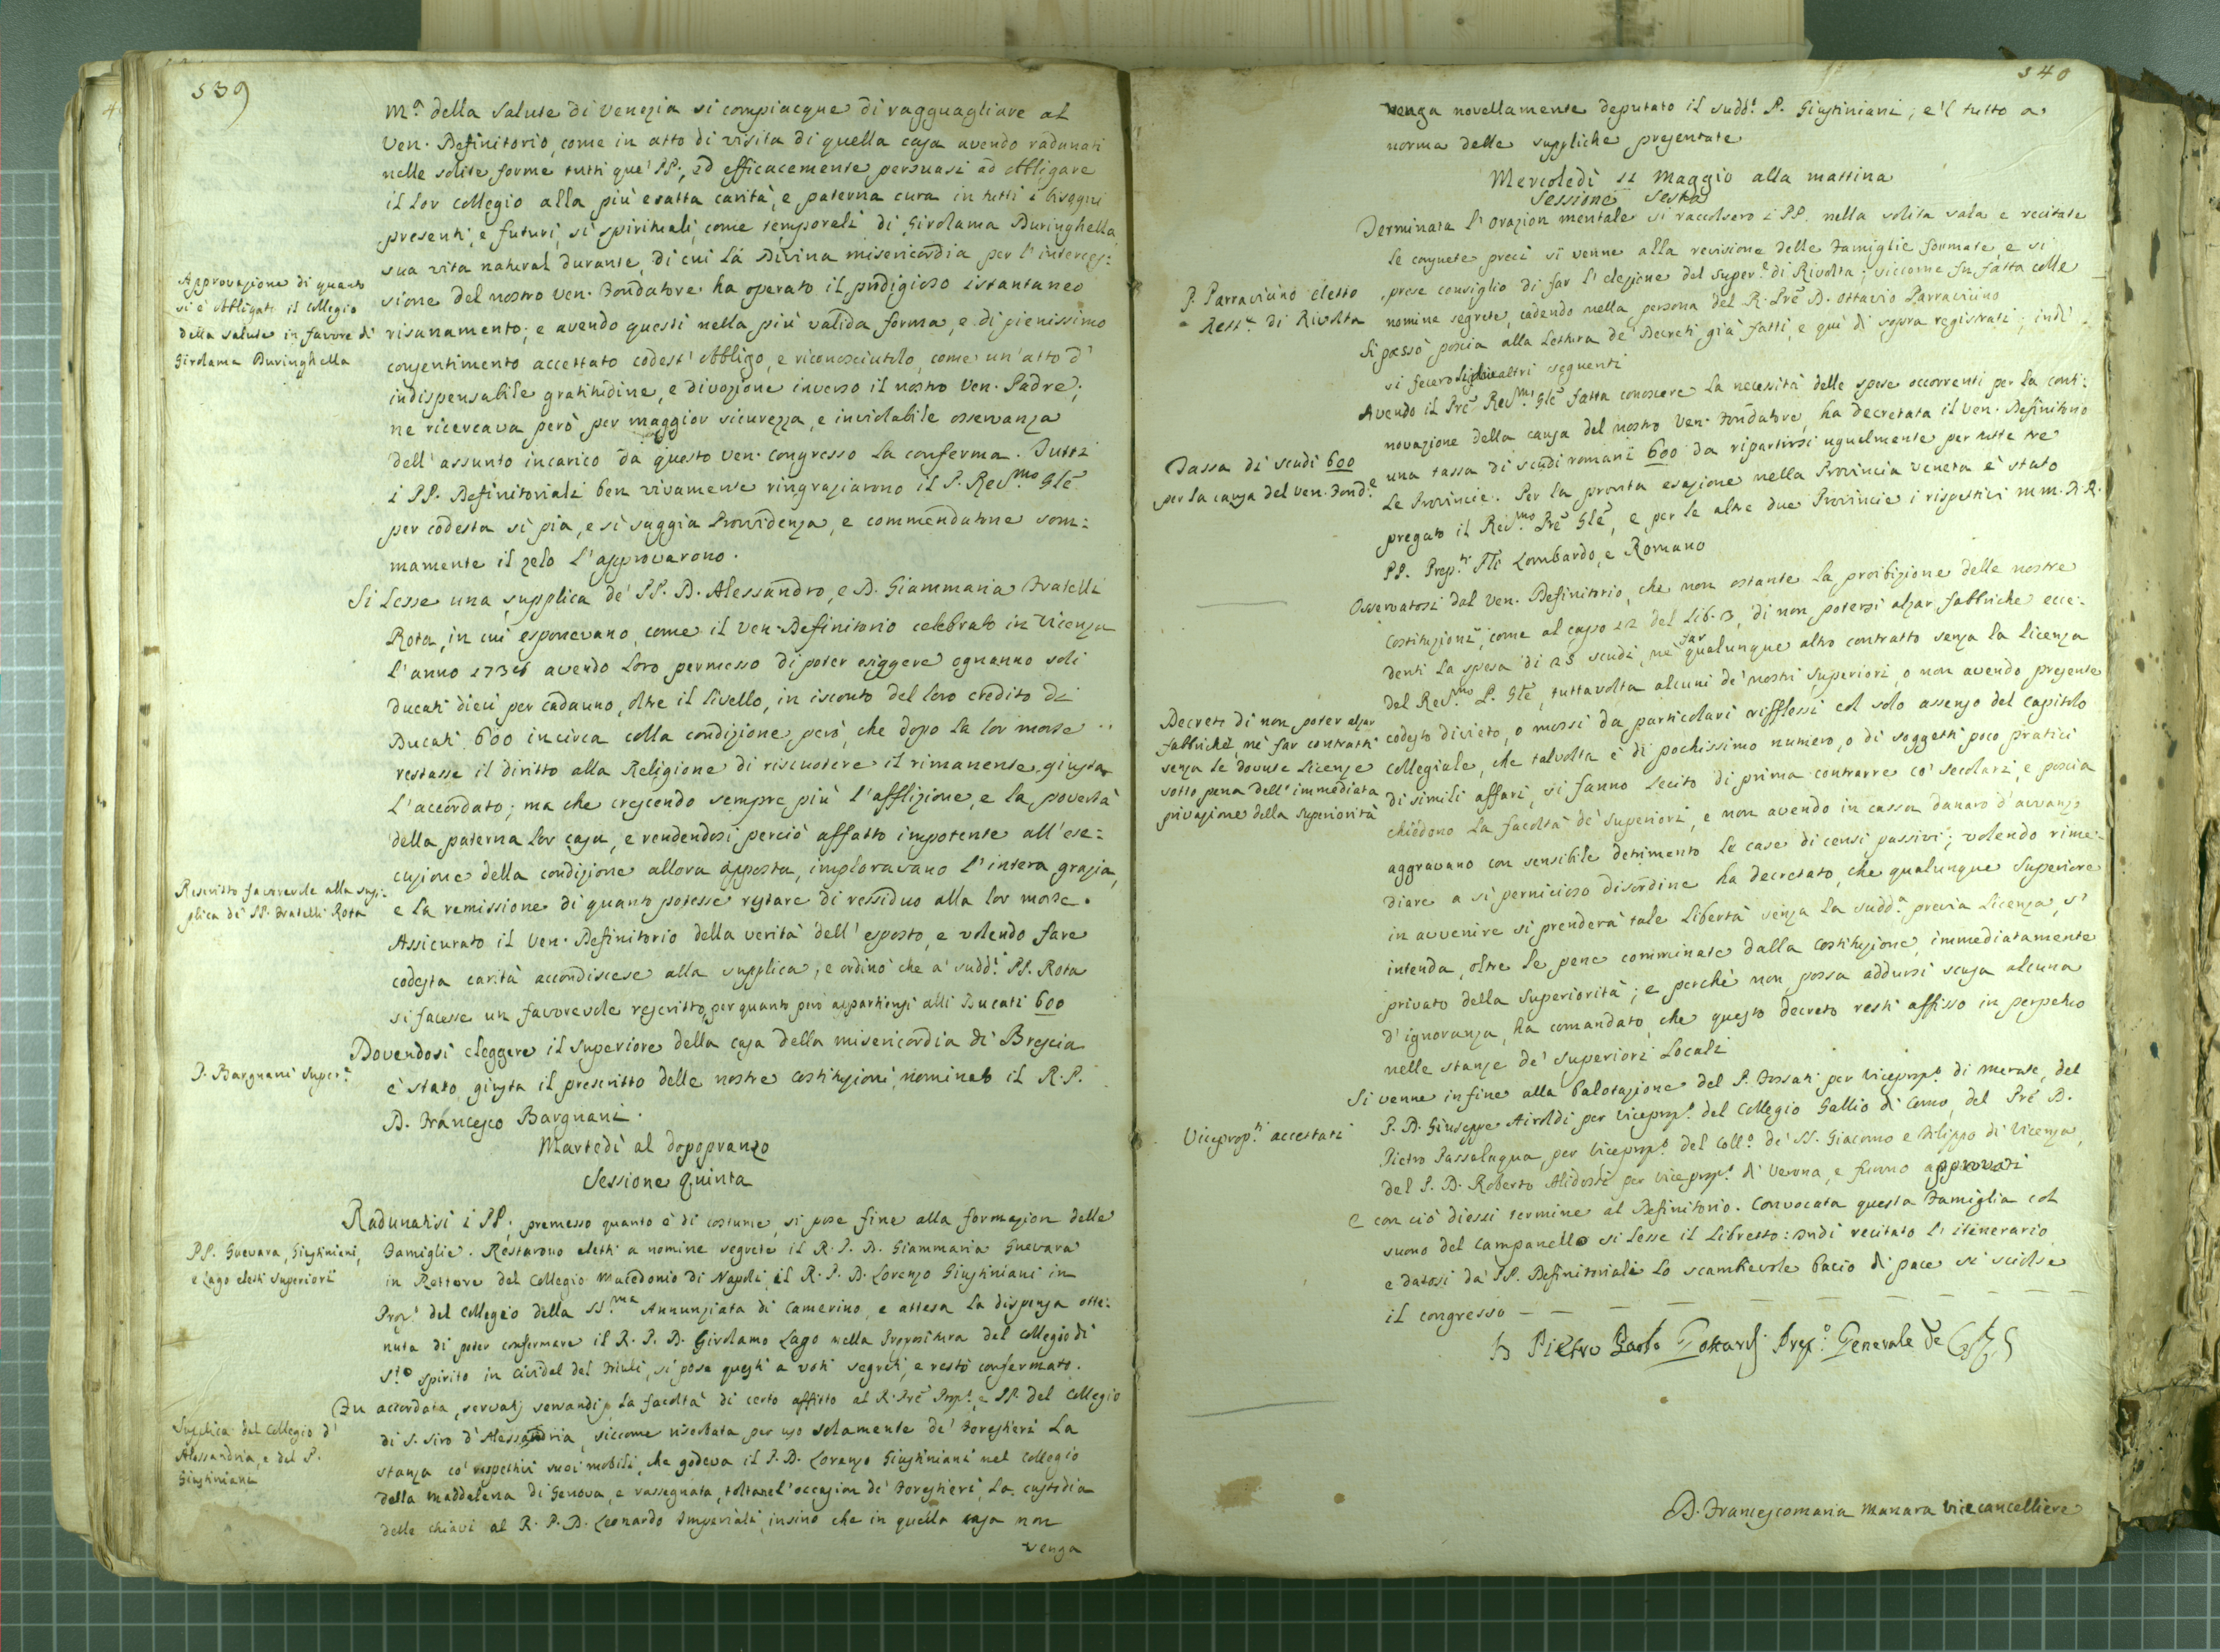 539
M.ª della Salute di Venezia si compiacque di ragguagliare al
Ven. Definitorio, come in atto di visita di quella casa avendo radunati
nelle solite forme tutti que' PP., ed efficacemente persuasi ad obbligare
il lor collegio alla più esatta carità, e paterna cura in tutti i bisogni
presenti, e futuri, sì spirituali, come temporali di Girolama Duringhella
sua vita natural durante, di cui la Divina misericordia per l'interces:
Approvazione di quanto
si è obbligato il collegio
della Salute in favore di
Girolama Duringhella
sione del nostro Ven. Fondatore ha operato il prodigioso istantaneo
risanamento; e avendo questi nella più valida forma, e di pienissimo
consentimento accettato codest' obbligo, e riconosciutolo, come un'atto d'
indispensabile gratitudine, e divozione inverso il nostro Ven. Padre;
ne ricercava però per maggior sicurezza, e inviolabile osservanza
dell'assunto incarico da questo Ven. congresso la conferma. Tutti
i PP. Definitoriali ben vivamente ringraziarono il P. Rev.mo Gle
per codesta sì pia, e sì saggia Provvidenza, e commendatone som:
mamente il zelo l'approvarono.
Si lesse una supplica de' PP. D. Alessandro, e D. Giammaria Fratelli
Rota, in cui esponevano, come il Ven. Definitorio celebrato in Vicenza
l'anno 1736 avendo loro permesso di poter esiggere ognanno soli
ducati dieci per cadauno, oltre il livello, in isconto del loro credito di
Ducati 600 incirca colla condizione però, che dopo la lor morte
restasse il diritto alla Religione di riscuotere il rimanente giusta
l'accordato; ma che crescendo sempre più l'afflizione, e la povertà
della paterna lor casa, e rendendosi perciò affatto impotente all'ese:
cuzione della condizione allora apposta, imploravano l'intera grazia,
Rescritto favorevole alla sup:
plica de' PP. Fratelli Rota
e la remissione di quanto potesse restare di ressiduo alla lor morte.
Assicurato il Ven. Definitorio della verità dell'esposto, e volendo fare
codesta carità accondiscese alla supplica, e ordinò che a' sudd.i PP. Rota
si facesse un favorevole rescritto, per quanto però appartiensi alli Ducati 600
Dovendosi eleggere il superiore della casa della misericordia di Brescia
P. Bargnani Super.e
è stato giusta il prescritto delle nostre costituzioni nominato il R. P.
D. Francesco Bargnani.
Martedì al dopopranzo
Sessione Quinta
Radunatisi i PP., premesso quanto è di costume, si pose fine alla formazion delle
PP. Guevara, Giustiniani,
e Lago eletti superiori
Famiglie. Restarono eletti a nomine segrete il R. P. D. Giammaria Guevara
in Rettore del Collegio Macedonio di Napoli, il R. P. D. Lorenzo Giustiniani in
Prop.º del Collegio della SS.ma Annunziata di Camerino, e attesa la dispensa otte:
nuta di poter confermare il R. P. D. Girolamo Lago nella Prepositura del Collegio di
S.to Spirito in Cividal del Friuli, si pose questi a voti segreti, e restò confermato.
Fu accordata, servatis servandis, la facoltà di certo affitto al R. Pre Prop.to, e PP. del Collegio
Supplica del Collegio d'
Alessandria, e del P.
Giustiniani
di S. Siro d'Alessandria, siccome riserbata per uso solamente de' Forestieri la
stanza co' rispettivi suoi mobili, che godeva il P. D. Lorenzo Giustiniani nel Collegio
della Maddalena di Genova, e rassegnata, toltane l'occasion de' Forestieri, la custodia
delle chiavi al R. P. D. Leonardo Imperiali, insino che in quella casa non
venga
540
venga novellamente deputato il sudd.º P. Giustiniani; e'l tutto a
norma delle suppliche presentate
Mercoledì 12 Maggio alla mattina
Sessione Sesta
Terminata l'Orazion mentale si raccolsero i PP. nella solita sala, e recitate
le consuete preci si venne alla revisione delle Famiglie formate, e si
P. Parravicino eletto
Rett.e di Rivolta
prese consiglio di far l'elezione del Super.e di Rivolta; siccome fu fatta colle
nomine segrete, cadendo nella persona del R. Pre D. Ottavio Parravicino
Si passò poscia alla lettura de' Decreti già fatti, e quì di sopra registrati; indi
si fecero li due altri seguenti
Avendo il Pre Rev.mo Gle fatta conoscere la necessità delle spese occorrenti per la conti:
novazione della causa del nostro Ven. Fondatore, ha decretata il Ven. Definitorio
Tassa di scudi 600
per la causa del Ven. Fond.e
una tassa di scudi romani 600 da ripartirsi ugualmente per tutte tre
le Provincie. Per la pronta esazione nella Provincia Veneta è stato
pregato il Rev.mo Pre Gle, e per le altre due Provincie i rispettivi M. M. R. R.
PP. Prep.ti Pli Lombardo, e Romano
Osservatosi dal Ven. Definitorio, che non ostante la proibizione delle nostre
Costituzioni, come al capo 12 del Lib. 3, di non potersi alzar fabbriche ecce:
denti la spesa di 25 scudi, nè far qualunque altro contratto senza la licenza
del Rev.mo P. Gle, tuttavolta alcuni de' nostri superiori, o non avendo presente
Decreto di non poter alzar
fabbriche nè far contratti
senza le dovute licenze
sotto pena dell'immediata
privazione della Superiorità
codesto divieto, o mossi da particolari rifflessi col solo assenso del capitolo
collegiale, che talvolta è di pochissimo numero, o di soggetti poco pratici
di simili affari, si fanno lecito di prima contrarre co' secolari, e poscia
chiedono la facoltà de' Superiori, e non avendo in cassa danaro d'avvanzo
aggravano con sensibile detrimento le case di censi passivi; volendo rime:
diare a sì pernicioso disordine ha decretato, che qualunque Superiore
in avvenire si prenderà tale libertà senza la sudd.ª previa licenza, s'
intenda, oltre le pene comminate dalla costituzione, immediatamente
privato della Superiorità; e perchè non possa addursi scusa alcuna
d'ignoranza, ha comandato, che questo decreto resti affisso in perpetuo
nelle stanze de' Superiori Locali
Si venne infine alla balotazione del P. Fossati per Viceprep.º di Merate, del
Viceprep.ti accettati
P. D. Giuseppe Airoldi per Viceprep.º del Collegio Gallio di Como, del Pre D.
Pietro Passalaqua, per Viceprep.º del Coll.º de' SS. Giacomo e Filippo di Vicenza,
del P. D. Roberto Alidosti per Viceprep.º di Verona, e furono approvati
e con ciò diessi termine al Definitorio. Convocata questa Famiglia col
suono del Campanello si lesse il Libretto: indi recitato l'itinerario
e datosi da' PP. Definitoriali lo scambievole bacio di pace si sciolse
il congresso
D. Pietro Paolo Gottardi Prep.º Generale de
D. Francescomaria Manara Vicecancelliere